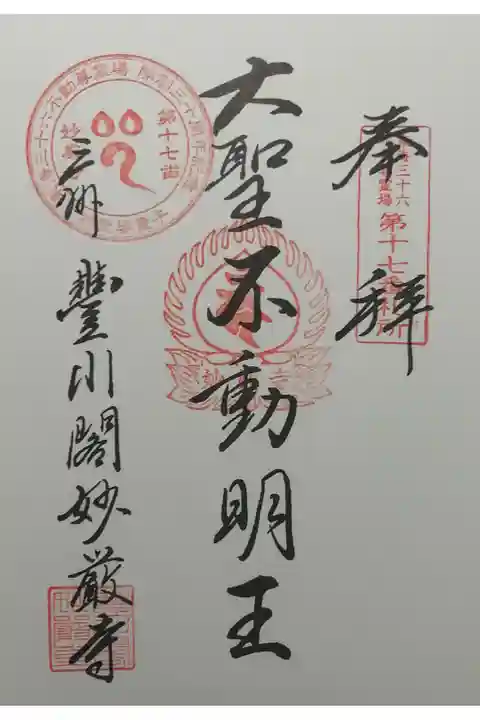 奉拝
三十六
霊場
第十七番札所
大聖不動明王
三州
豐川閣妙厳寺
三十六不動尊霊場
第十七番